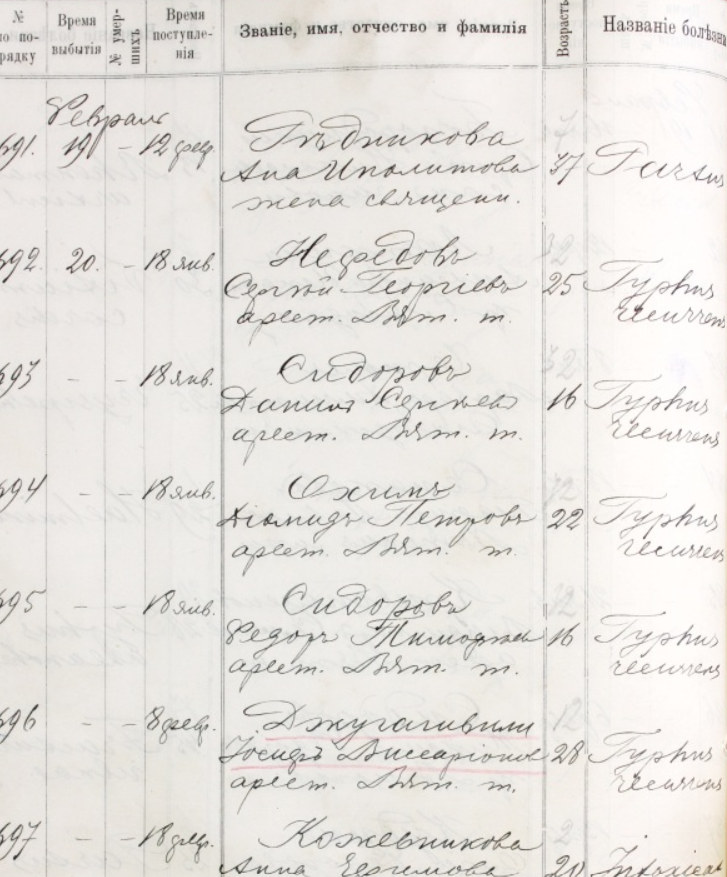 № по порядку Время выбытія № умершихъ Время поступленія Званіе, имя, отчество и фамилія Возрастъ Названіе болѣзни
Февраль
691. 19 – 12 февр. Гнѣдникова
Анна Иполитова 37 Partus
жена священ.
692. 20. – 18 янв. Нефедовъ
Сергѣй Георгіевъ 25 Typhus
арест. Вят. т. recurrens
693 – – 18 янв. Сидоровъ
Данилъ Сергѣевъ 16 Typhus
арест. Вят. т. recurrens
694 – – 18 янв. Охимъ
Діомидъ Петровъ 22 Typhus
арест. Вят. т. recurrens
695 – – 18 янв. Сидоровъ
Федоръ Тимофеев 16 Typhus
арест. Вят. т. recurrens
696 – – 8 февр. Джугашвили
Іосифъ Виссаріонов 28 Typhus
арест. Вят. т. recurrens
697 – – 18 февр. Кожевникова
Анна 20